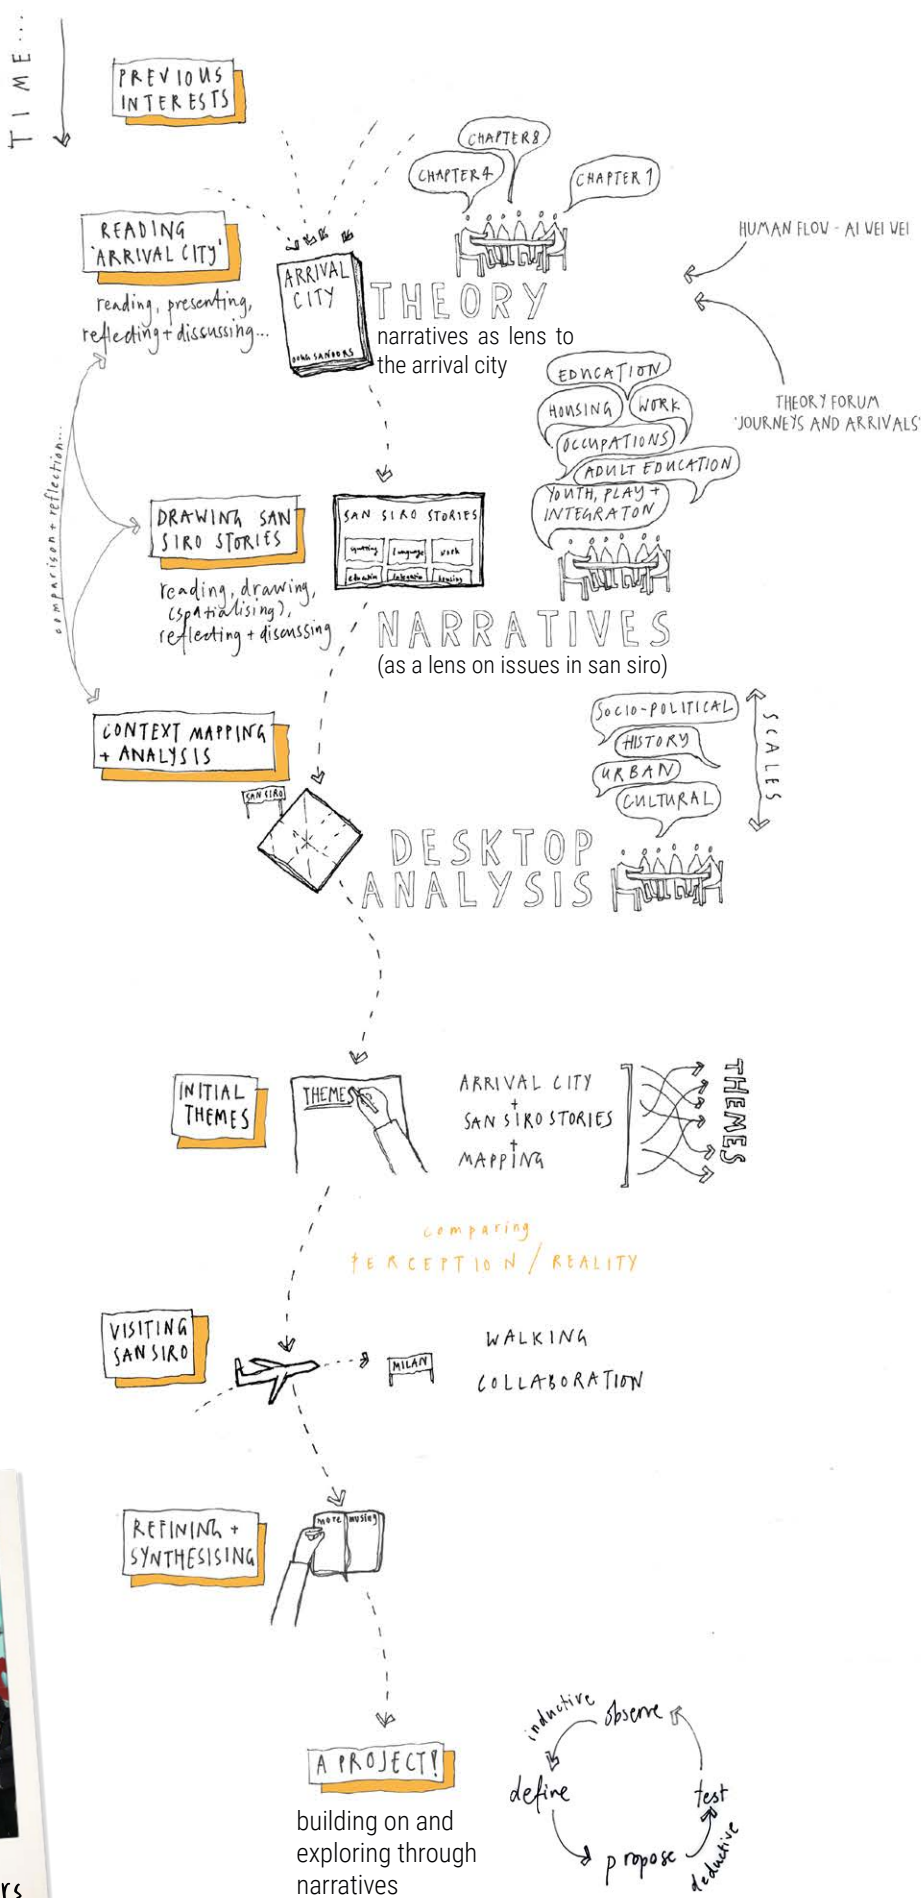 TIME...
PREVIOUS
INTERESTS
CHAPTER 8
CHAPTER 4
CHAPTER 1
READING
'ARRIVAL CITY'
reading, presenting,
reflecting + dissussing...
ARRIVAL
CITY
DOUG SANDERS
THEORY
narratives as lens to
the arrival city
HUMAN FLOW - AI WEI WEI
THEORY FORUM
'JOURNEYS AND ARRIVALS'
comparison + reflection...
EDUCATION
HOUSING
WORK
OCCUPATIONS
ADULT EDUCATION
YOUTH, PLAY +
INTEGRATON
DRAWING SAN
SIRO STORIES
reading, drawing,
(spatialising),
reflecting + discussing
SAN SIRO STORIES
squatting
language
work
education
housing
NARRATIVES
(as a lens on issues in san siro)
CONTEXT MAPPING
+ ANALYSIS
SAN SIRO
SOCIO-POLITICAL
HISTORY
URBAN
CULTURAL
SCALES
DESKTOP
ANALYSIS
INITIAL
THEMES
THEMES
ARRIVAL CITY
+
SAN SIRO STORIES
+
MAPPING
THEMES
comparing
PERCEPTION / REALITY
VISITING
SAN SIRO
MILAN
WALKING
COLLABORATION
REFINING +
SYNTHESISING
more musing
A PROJECT!
building on and
exploring through
narratives
inductive
observe
define
test
propose
deductive
rs